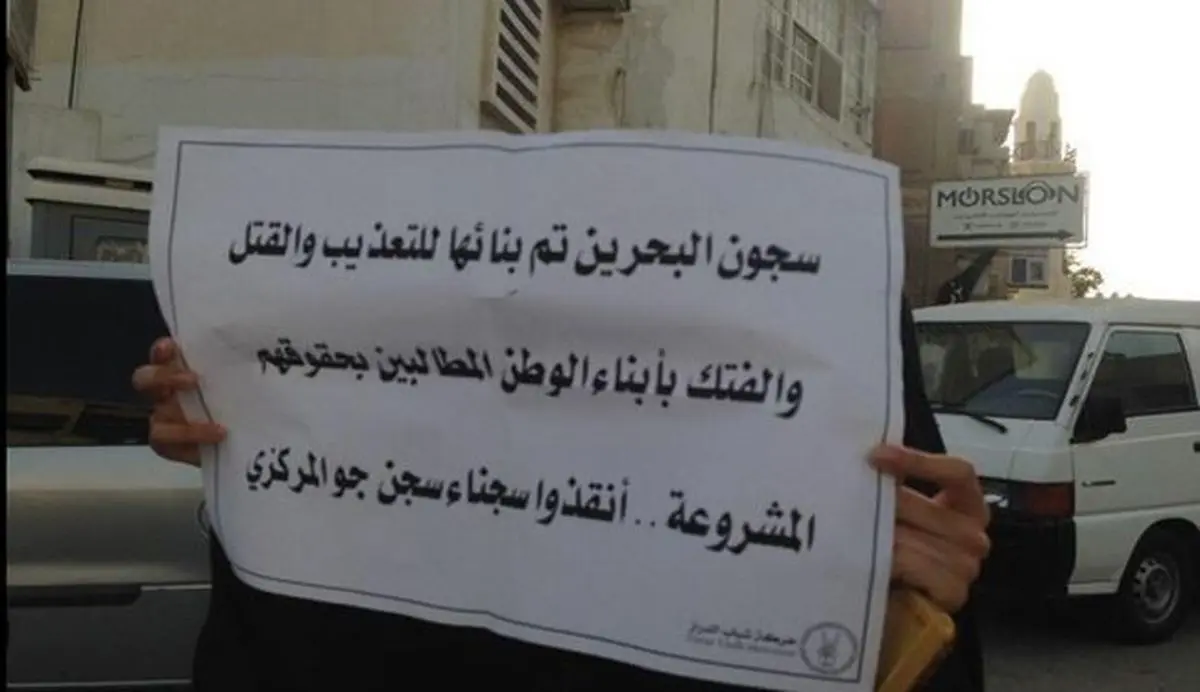 سجون البحرين تم بنائها للتعذيب والقتل
والفتك بأبناء الوطن المطالبين بحقوقهم
المشروعة .. أنقذوا سجناء سجن جو المركزي
حركة شباب
MORSLOON